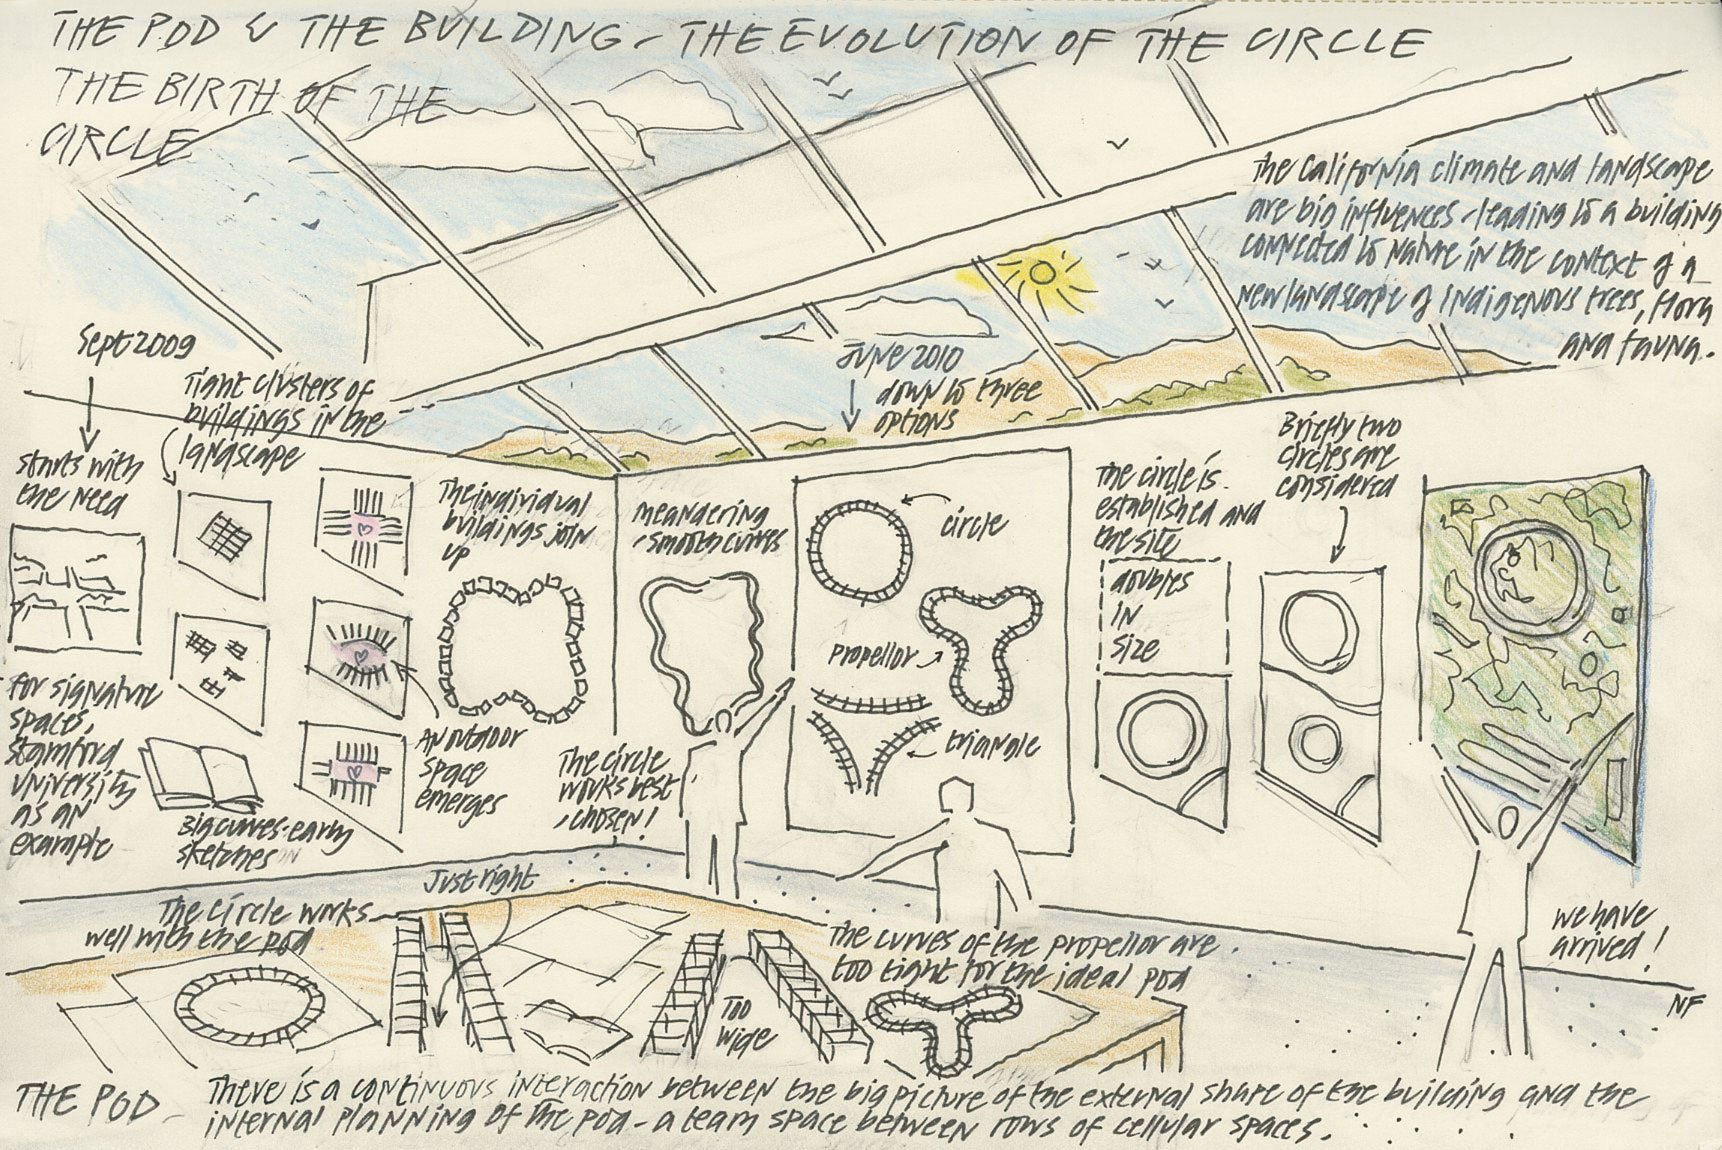 THE POD & THE BUILDING - THE EVOLUTION OF THE CIRCLE
THE BIRTH OF THE
CIRCLE
The California climate and landscape
are big influences - leading to a building
connected to nature in the context of a
new landscape of indigenous trees, flora
and fauna.
Sept 2009
starts with
the need
for signature
spaces,
Stamford
University
as an
example
Tight clusters of
buildings in the
landscape
Big curves - early
sketches
An outdoor
space
emerges
The individual
buildings join
up
The circle
works best
, chosen!
meandering
, smooth curves
June 2010
down to three
options
circle
propellor
triangle
The circle is
established and
the site
doubles
IN
size
Briefly two
circles are
considered
we have
arrived!
NF
Just right
The circle works
well with the pod
Too
wide
The curves of the propellor are
too tight for the ideal pod
THE POD - There is a continuous interaction between the big picture of the external shape of the building and the
internal planning of the pod - a team space between rows of cellular spaces.